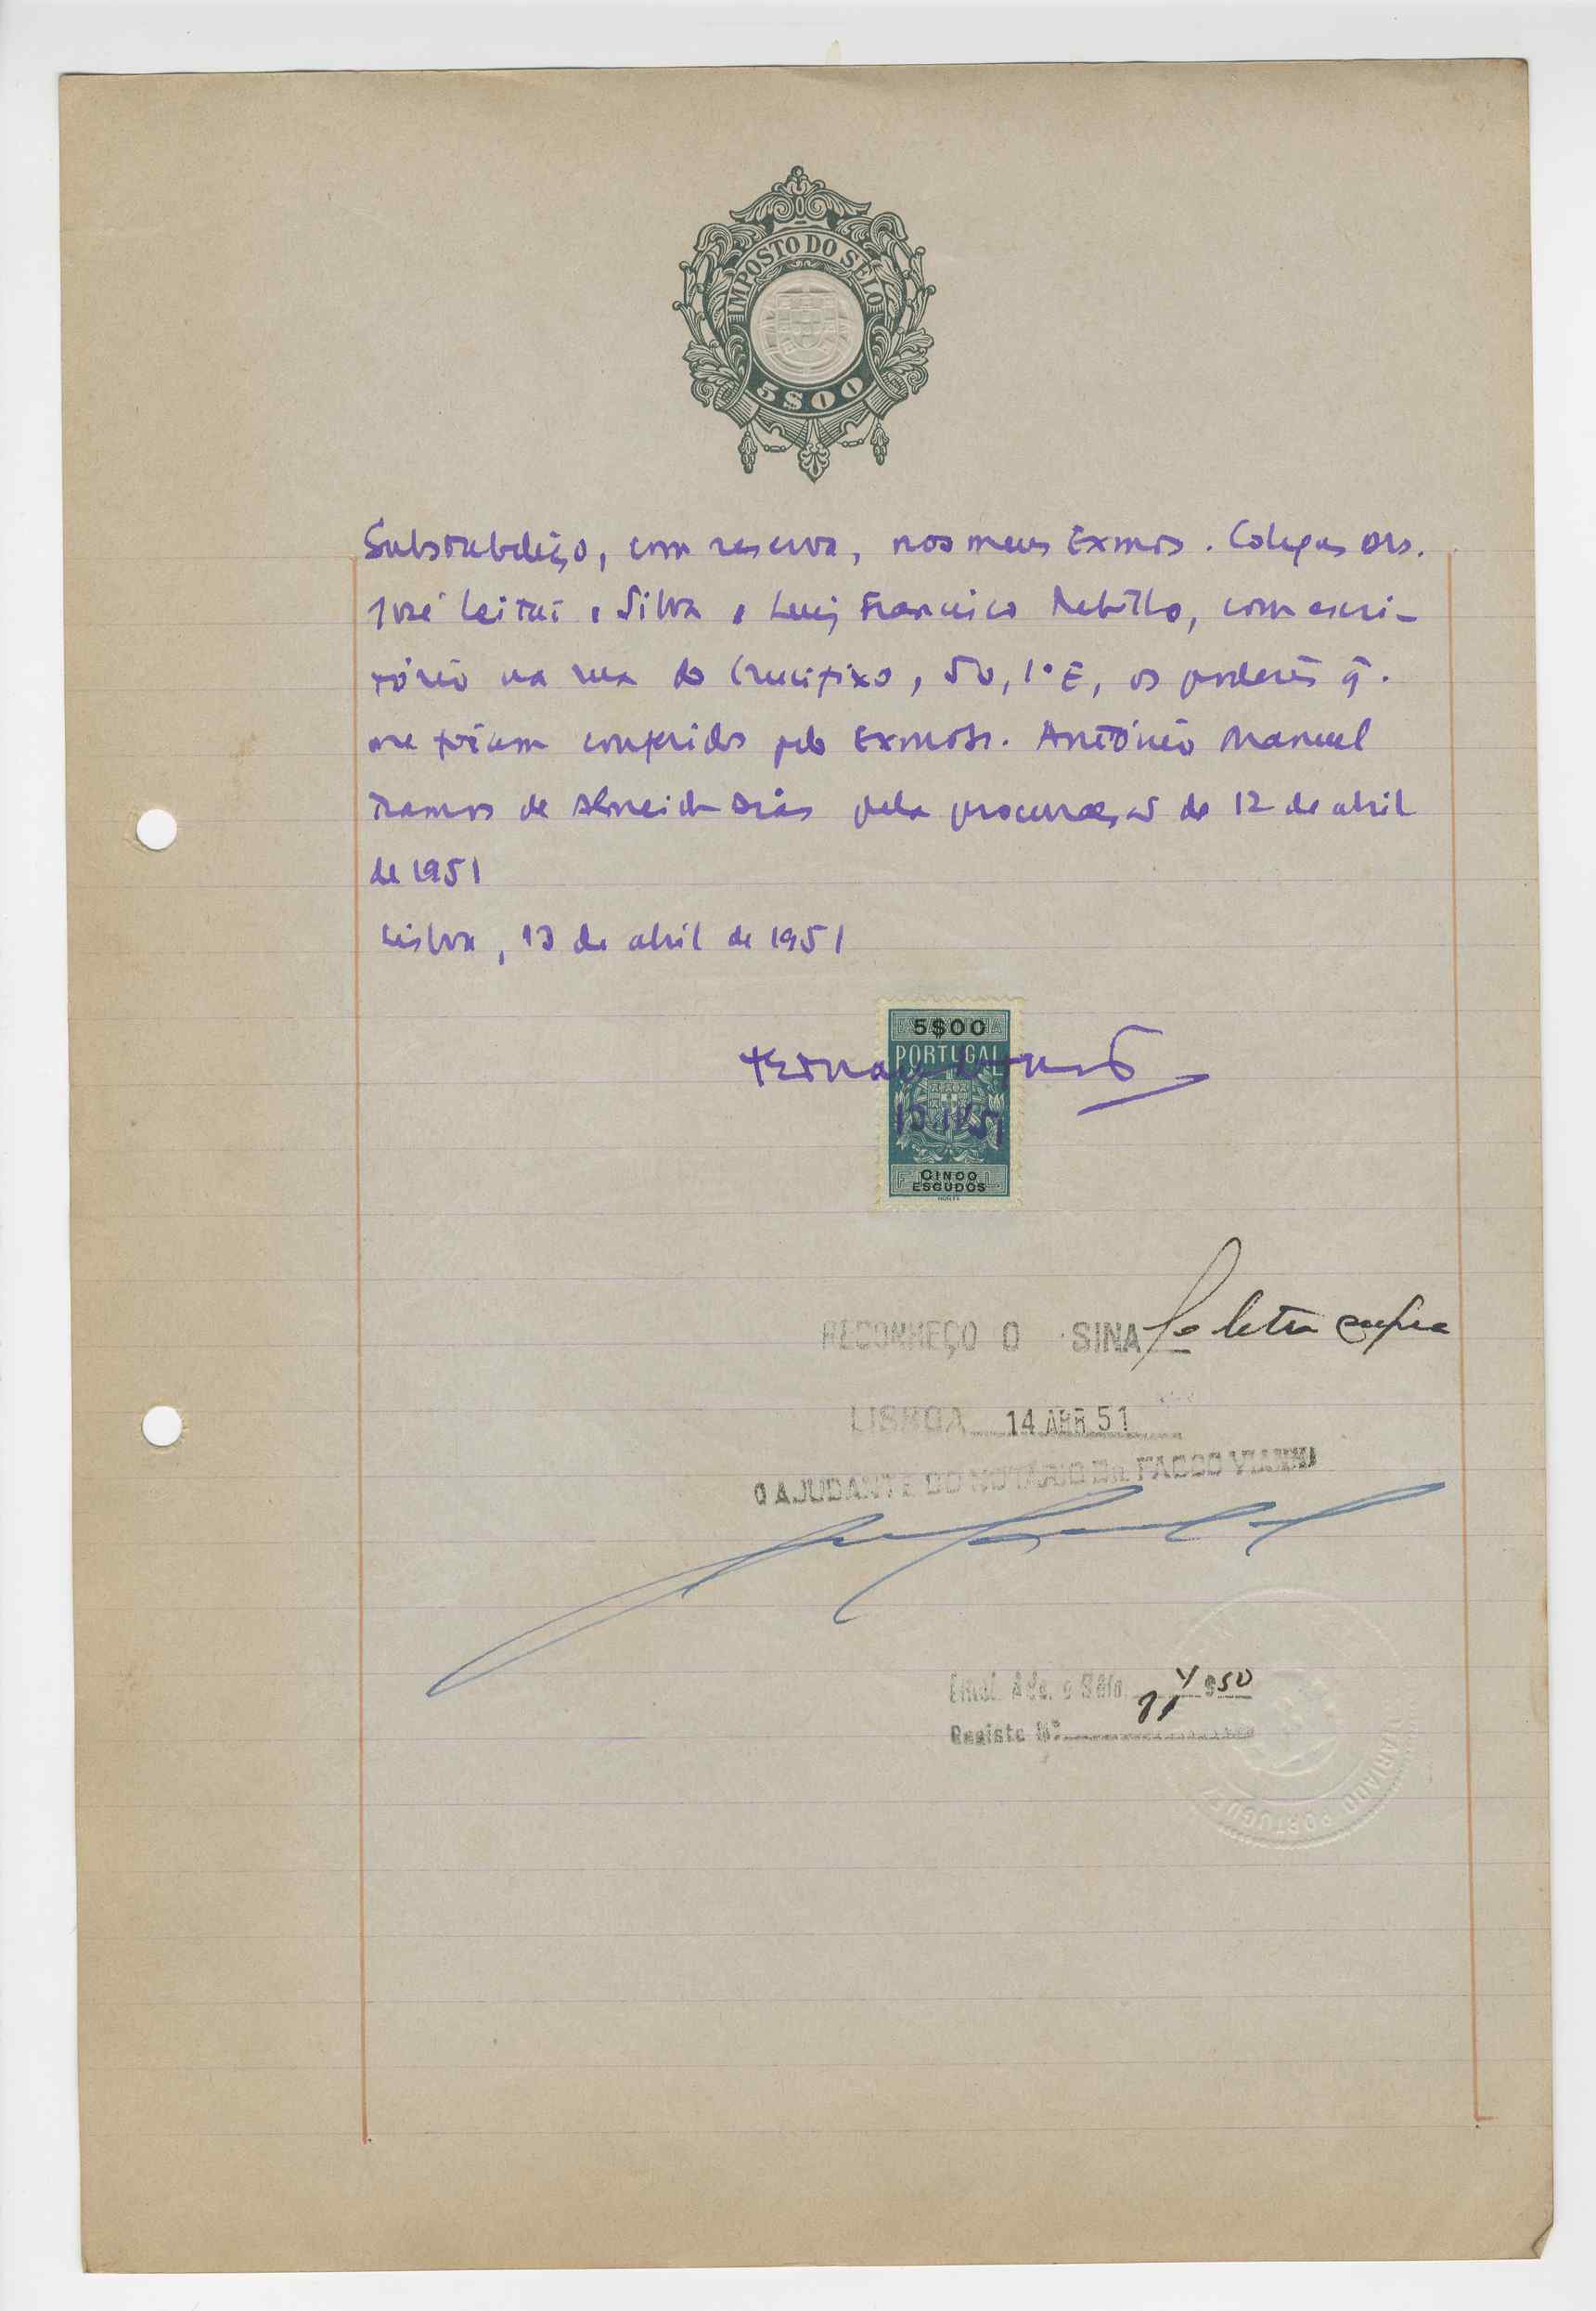 IMPOSTO DO SÊLO
5$00
Substabeleço, com reserva, nos meus Exmos. Colegas Drs.
José Leitão e Silva e Luiz Francisco Rebello, com escri-
tório na rua do Crucifixo, 50, 1º E, os poderes q.
me foram conferidos pelo Exmo Sr. António Manuel
Ramos de Almeida Dias pela procuração de 12 de abril
de 1951
Lisboa, 13 de abril de 1951
5$00
PORTUGAL
13.IV.51
CINCO
ESCUDOS
RECONHEÇO O SINAL e letra supra
LISBOA 14 ABR. 51
O AJUDANTE DO NOTÁRIO DR.
Emol. Adc. e Sêlo $50
Registo Nº
NOTARIADO PORTUGUÊS